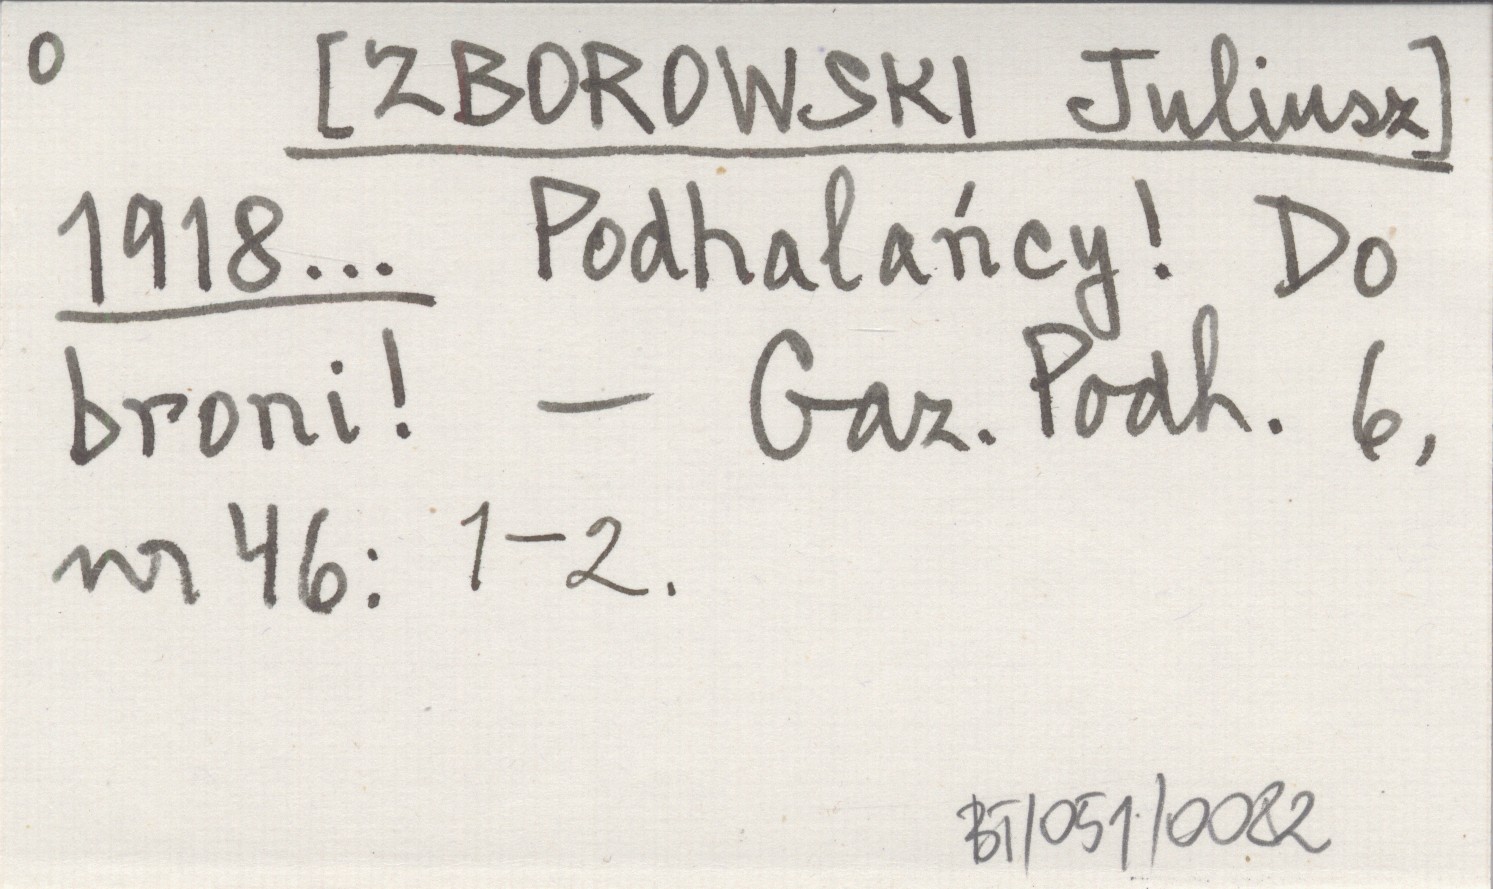 0 [ZBOROWSKI Juliusz]
1918... Podhalańcy! Do
broni! — Gaz. Podh. 6,
nr 46: 1-2.
BT/051/0082